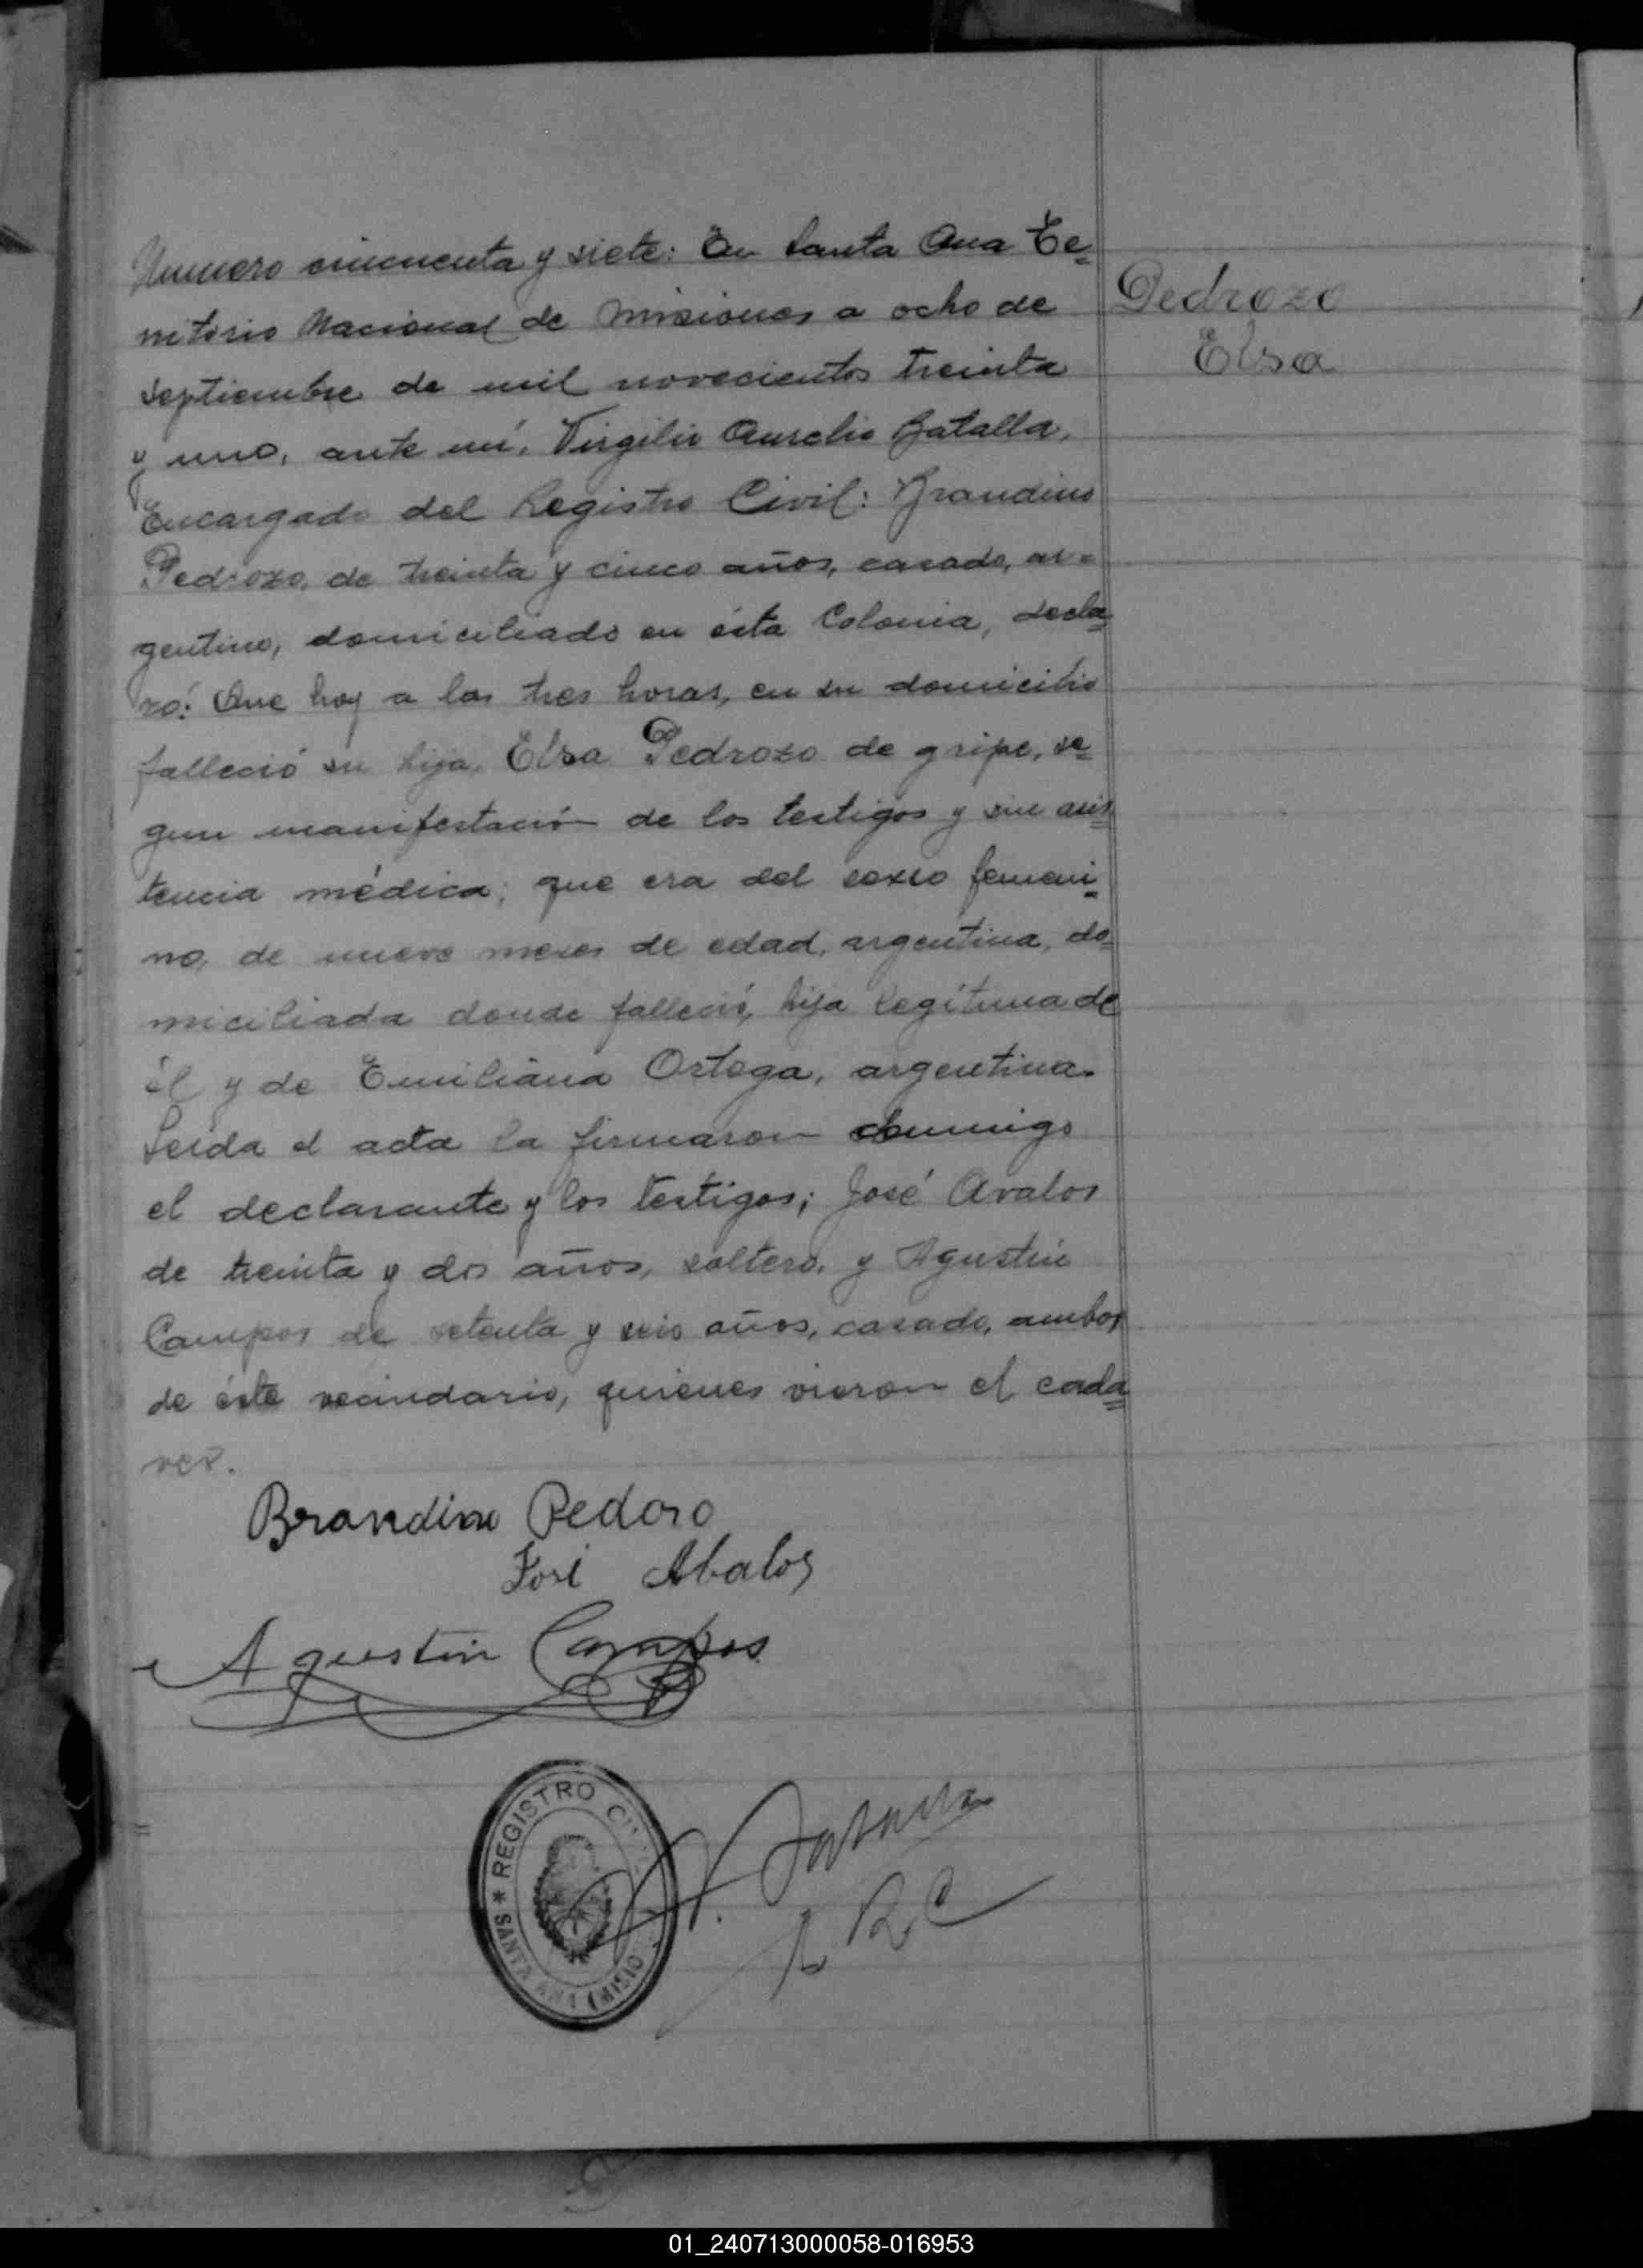 Numero cincuenta y siete: En Santa Ana Te=
rritorio Nacional de Misiones a ocho de
Septiembre de mil novecientos treinta
y uno, ante mí, Virgilio Aurelio Batalla,
Encargado del Registro Civil: Brandino
Pedrozo, de treinta y cinco años, casado, ar=
gentino, domiciliado en ésta Colonia, decla=
ró: Que hoy a las tres horas, en su domicilio
falleció su hija, Elsa Pedrozo de gripe, se=
gun manifestación de los testigos y sin asis=
tencia médica; que era del sexo femeni=
no, de nueve meses de edad, argentina, do=
miciliada donde falleció, hija legítima de
él y de Emiliana Ortega, argentina.
Leida el acta la firmaron conmigo
el declarante y los testigos; José Avalos
de treinta y dos años, soltero, y Agustin
Campos de setenta y seis años, casado, ambos
de éste vecindario, quienes vieron el cada=
ver.
Pedrozo
Elsa
Brandino Pedoro
José Abalos
Agustin Campos
REGISTRO CIVIL
* SANTA ANA (MISIO
V. A. Batalla
E R C
01_240713000058-016953